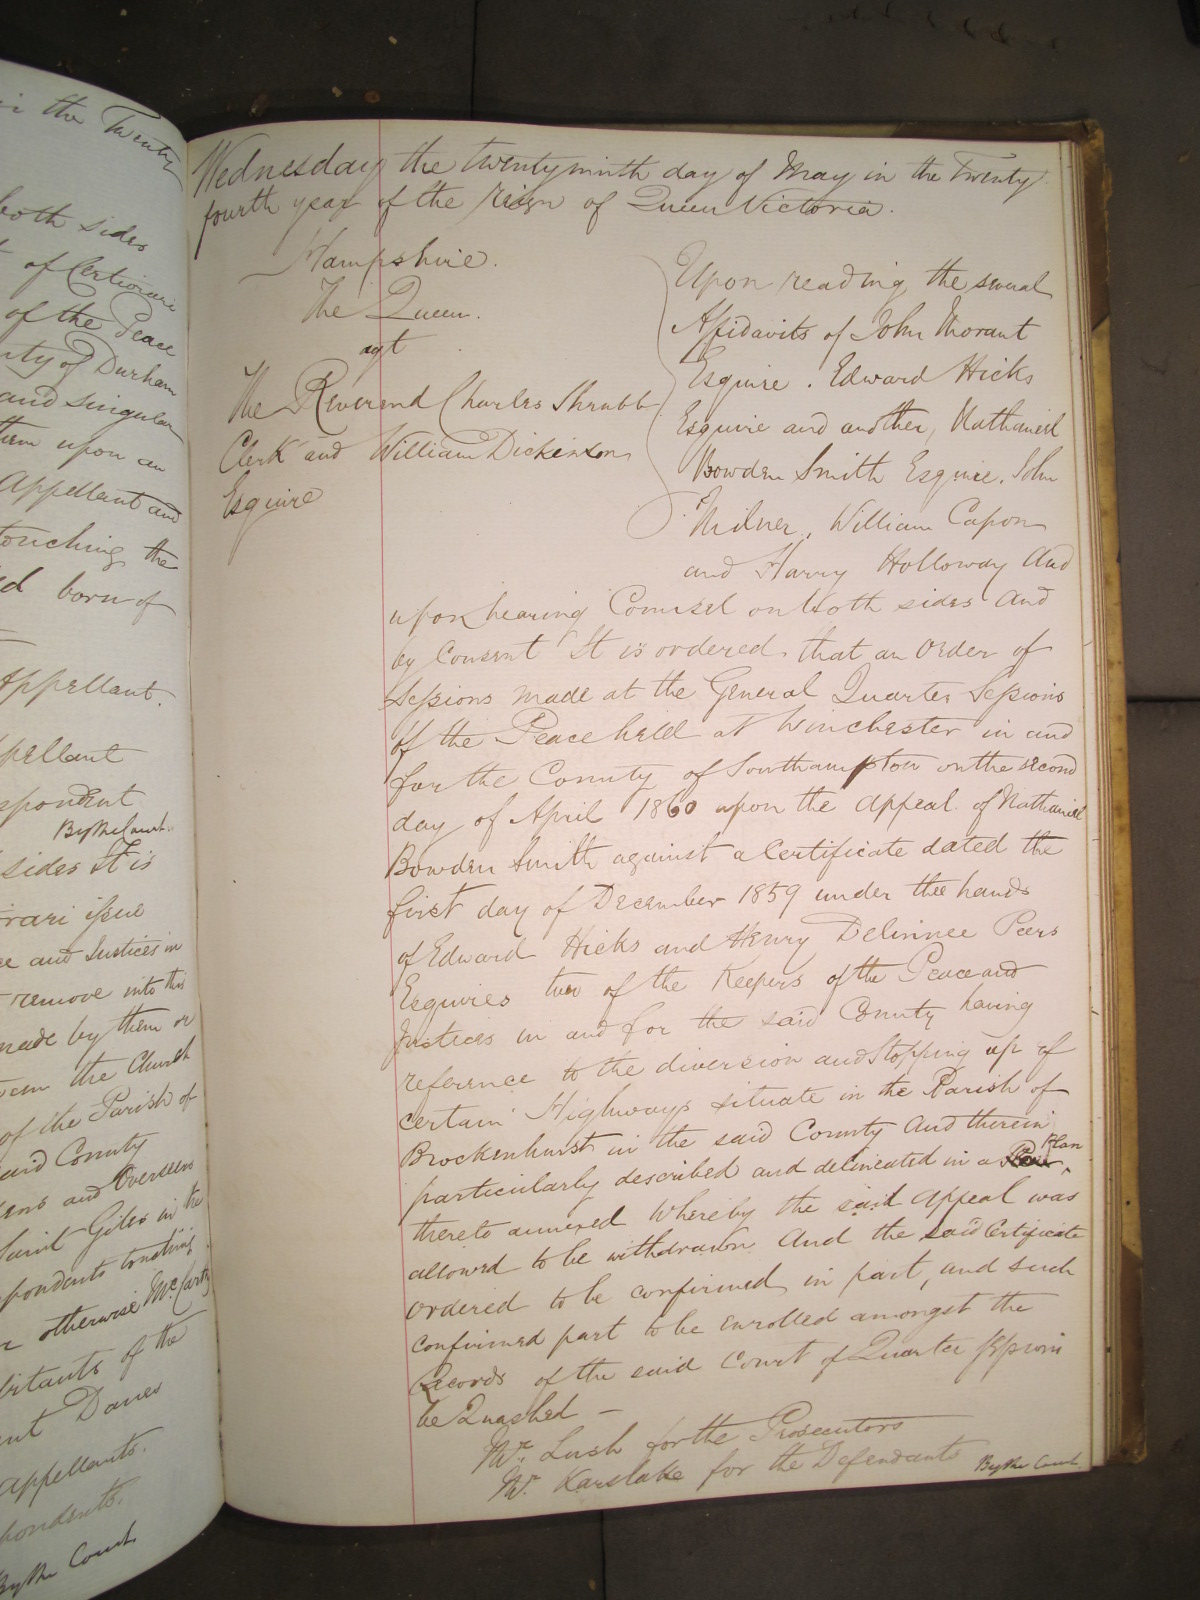 in the Twenty
both sides
of Certiorari
of the Peace
County of Durham
and singular
them upon an
Appellant and
touching the
born of
Appellant.
Appellant
Respondent
By the Court.
sides It is
issue
and Justices in
remove into this
made by them or
the Church
of the Parish of
said County
and Overseers
Saint Giles in the
Respondents touching
otherwise McCarty
of the
Danes
Appellants.
Respondents.
By the Court
Wednesday the twentyninth day of May in the Twenty
fourth year of the Reign of Queen Victoria.
Hampshire.
The Queen.
agt
The Reverend Charles Shrubb
Clerk and William Dickinson
Esquire
Upon reading the several
Affidavits of John Morant
Esquire. Edward Hicks
Esquire and another, Nathaniel
Bowden Smith Esquire. John
Milner, William Capon
and Harry Holloway And
upon hearing Counsel on both sides And
by Consent It is ordered that an Order of
Sessions made at the General Quarter Sessions
of the Peace held at Winchester in and
for the County of Southampton on the second
day of April 1860 upon the appeal of Nathaniel
Bowden Smith against a Certificate dated the
first day of December 1859 under the hands
of Edward Hicks and Henry Peers
Esquires two of the Keepers of the Peace and
Justices in and for the said County having
reference to the diversion and stopping up of
certain Highways situate in the Parish of
Brockenhurst in the said County And therein
particularly described and delineated in a Plan
thereto annexed Whereby the said appeal was
allowed to be withdrawn And the said Certificate
ordered to be confirmed in part, and such
confirmed part to be enrolled amongst the
Records of the said Court of Quarter Sessions
be Quashed —
Mr. Lush for the Prosecutors
Mr. Karslake for the Defendants By the Court